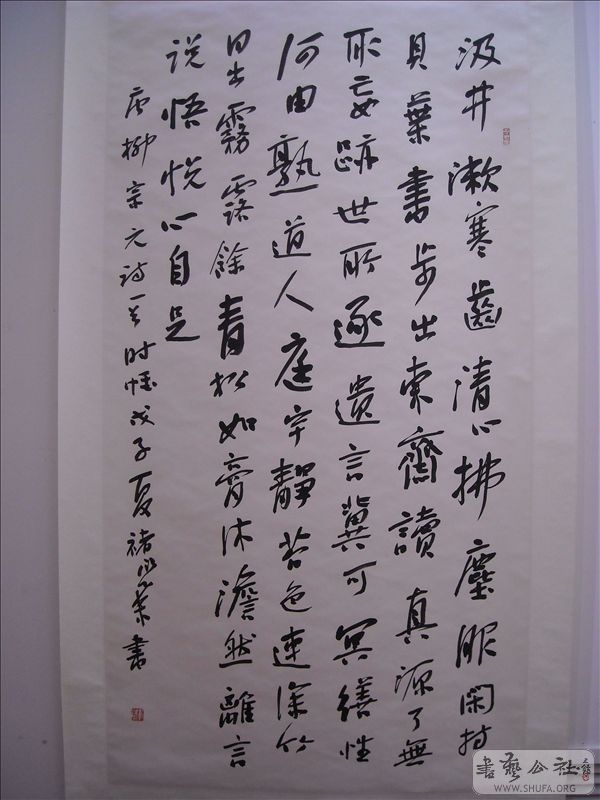 汲井漱寒齒清心拂塵服閑持
貝葉書步出東齋讀真源了無
取妄跡世所逐遺言冀可冥繕性
何由熟道人庭宇靜苔色連深竹
日出霧露餘青松如膏沐澹然離言
说悟悦心自足
唐柳宗元诗一首时惟戊子夏褚業書
書藝公社
WWW.SHUFA.ORG